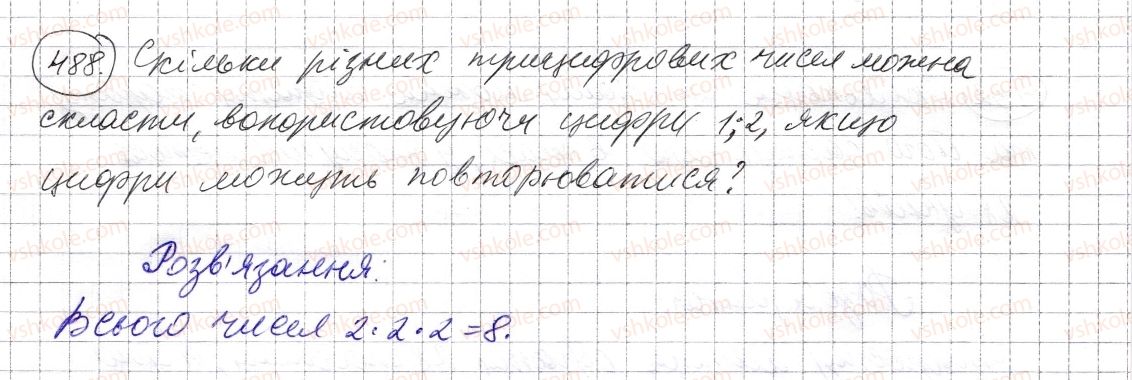 488. Скільки різних трицифрових чисел можна
скласти, використовуючи цифри 1; 2, якщо
цифри можуть повторюватися?
Розв'язання:
Всього чисел 2·2·2=8.